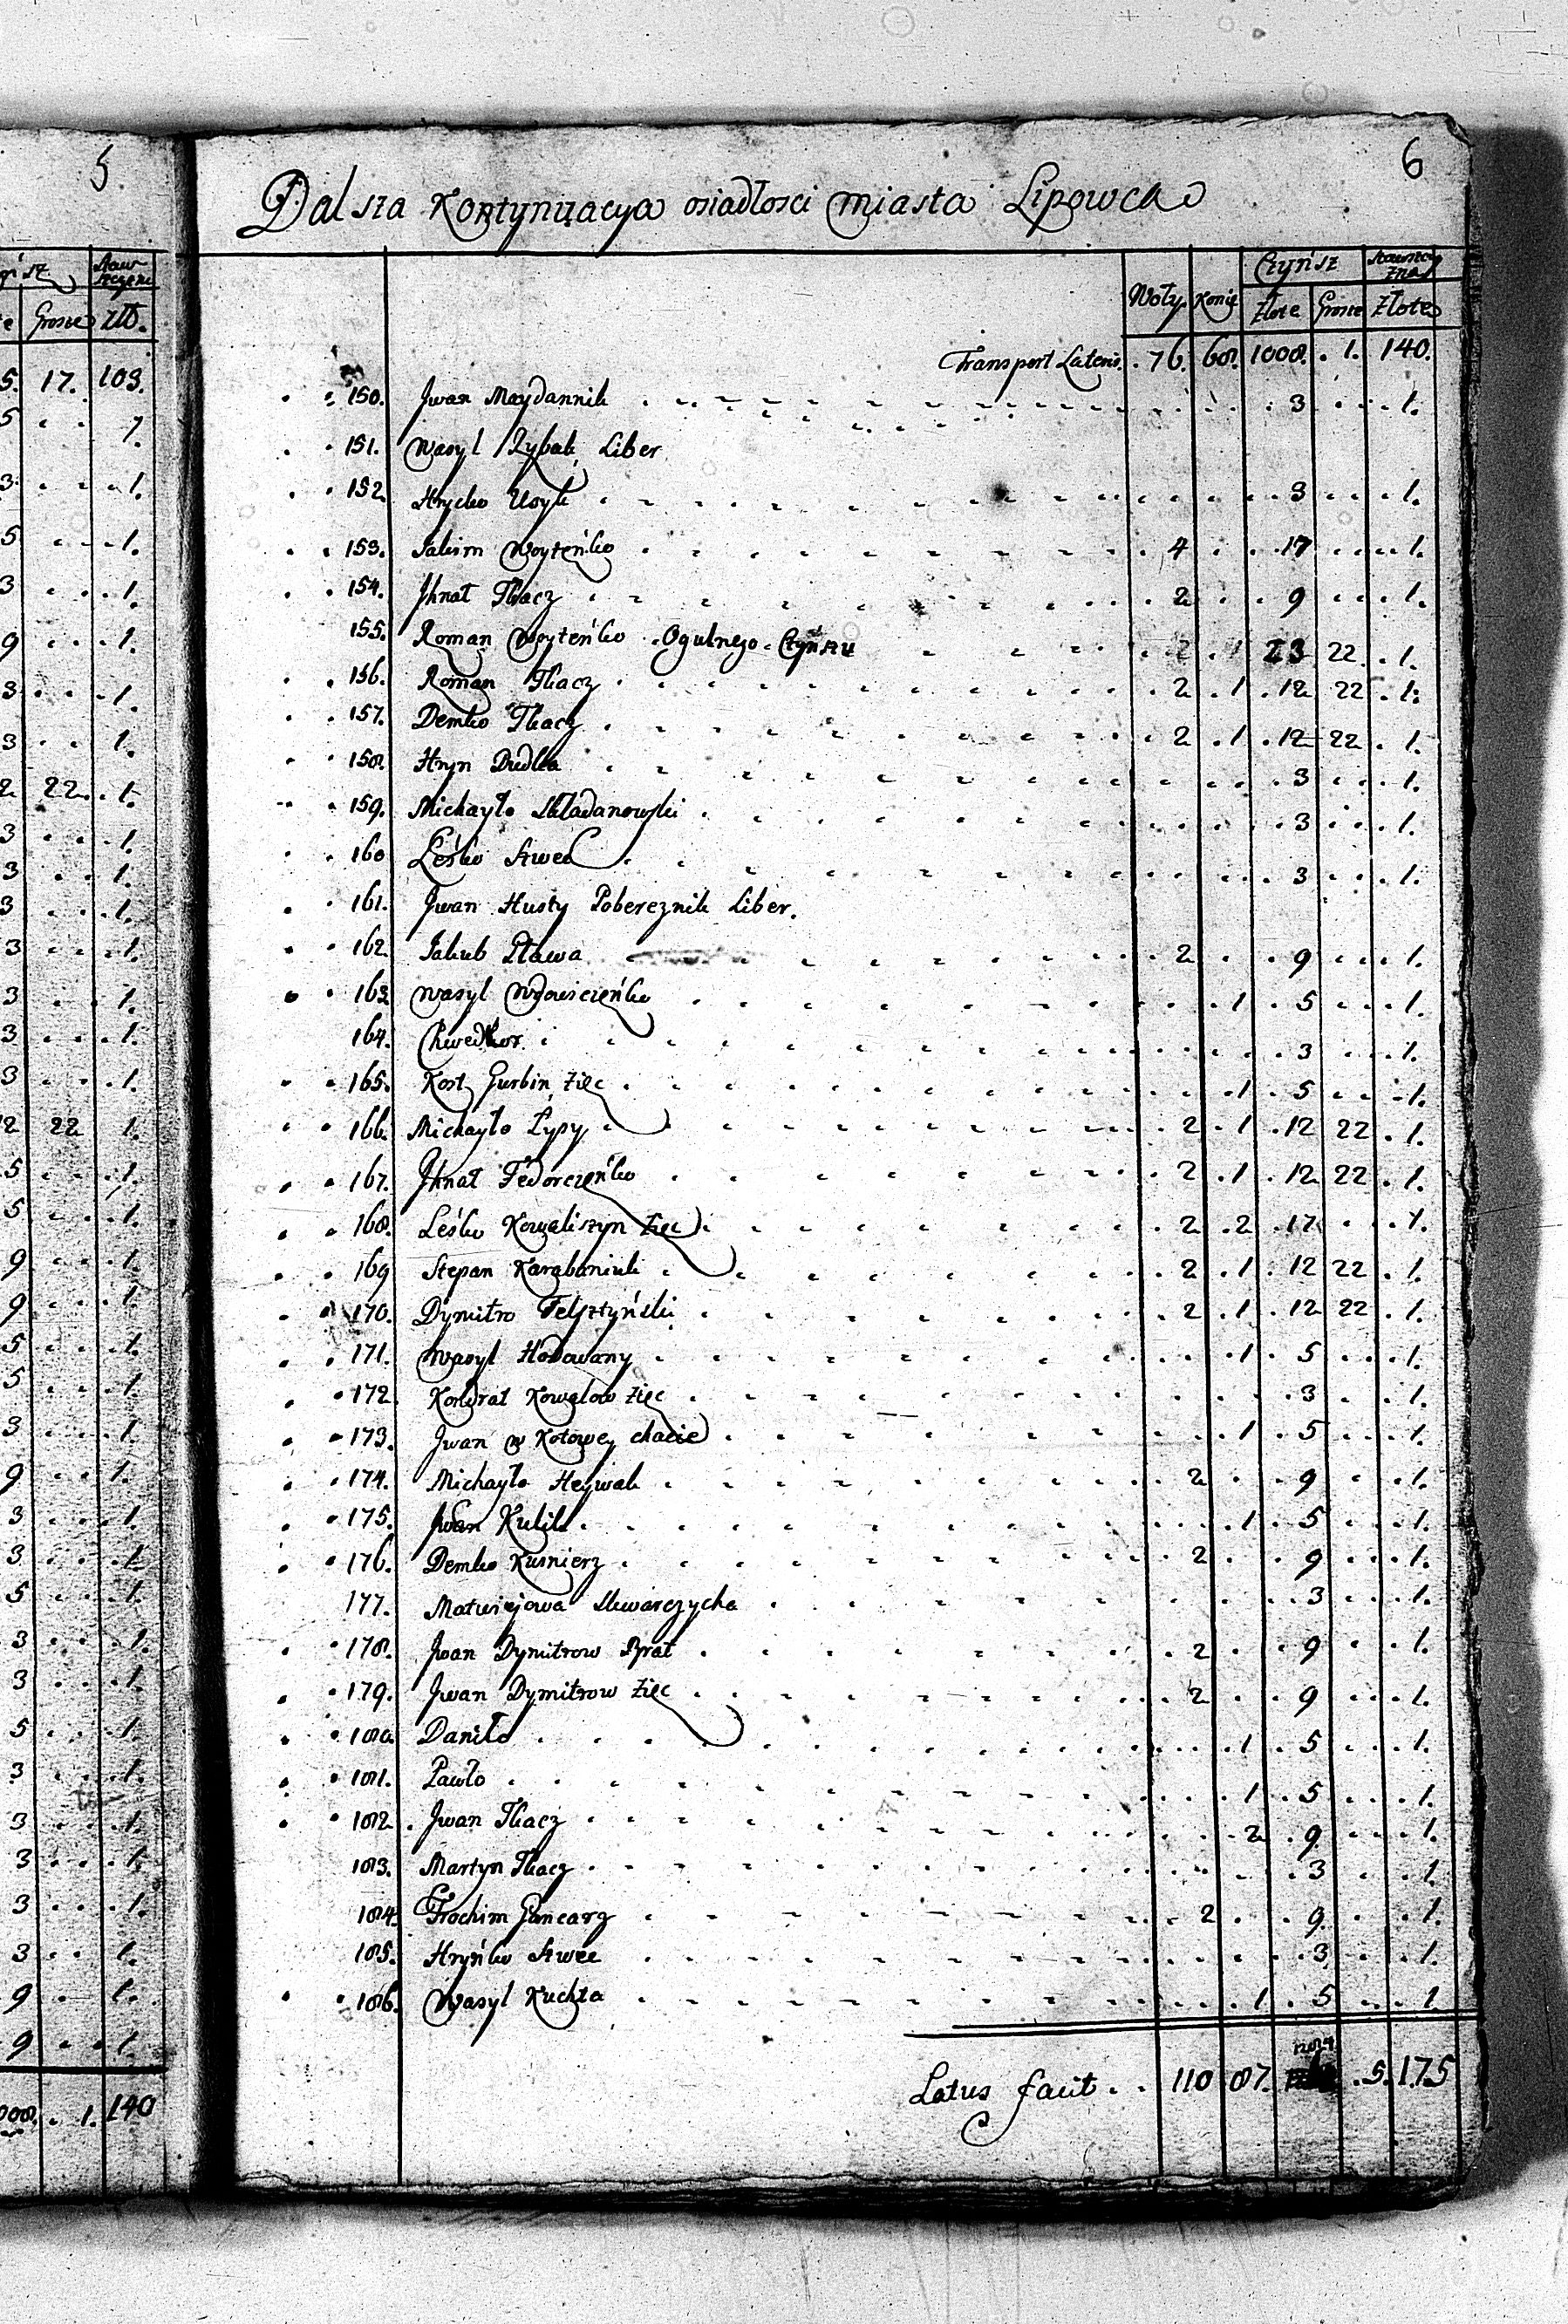 5
Grosze Złł.
17. 103.
22. 1.
22 1.
1. 140
6
Dalsza Kontynuacya osiadłosci miasta Lipowca
Woły. Konie Czyńsz
Złote Grosze Złote
Transport Lateris. 76. 68. 1008. 1. 140.
150. Jwan Maydannik 3 1.
151. Wasyl Rybak Liber
152 Hryćko Usyk 3 1.
153. Jakim Woyteńko 4 17 1.
154. Jhnat Tkacz 2 9 1.
155. Roman Woyteńko Ogulnego Czyńszu 2 1 23 22 1.
156. Roman Tkacz 2 1 12 22 1.
157. Demko Tkacz 2 1 12 22 1.
158. Hryn Dudka 3 1.
159. Michayło Składanowski 3 1.
160 Leśko Szwec 3 1.
161. Jwan Husty Pobereznik Liber.
162 Jakub Pława 2 9 1.
163 Wasyl Wdowiczeńko 1 5 1.
164. Chwedkor 3 1.
165. Kost Gurbin Zięc 1 5 1.
166. Michayło Lypy 2 1 12 22 1.
167. Jhnat Fedorczeńko 2 1 12 22 1.
168. Leśko Kowaliszyn Zięc 2 2 17 1.
169 Stepan Karabaniuk 2 1 12 22 1.
170. Dymitro Felsztyński 2 1 12 22 1.
171. Wasyl Hodowany 1 5 1.
172. Kondrat Kowalow Zięc 3 1.
173. Jwan w Kotowey chacie 1 5 1.
174. Michayło Heywak 2 9 1.
175. Jwan Kulik 1 5 1.
176. Demko Kusnierz 2 9 1.
177. Matwiejowa Skwarczycha 3 1.
178. Jwan Dymitrow Brat 2 9 1.
179. Jwan Dymitrow Zięc 2 9 1.
180. Daniło 1 5 1.
181. Pawło 1 5 1.
182. Jwan Tkacz 2 9 1.
183. Martyn Tkacz 3 1
184. Trochim Gancarz 2 9 1.
185. Hryńko Szwec 3 1.
186. Wasyl Kuchta 1 5 1
Latus facit 110 87. 5. 175